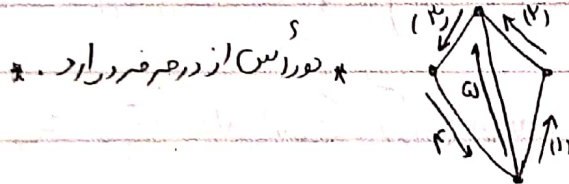 * دو رأس از درجه فرد دارد. *
(۳)
(۲)
۵
۴
(۱)